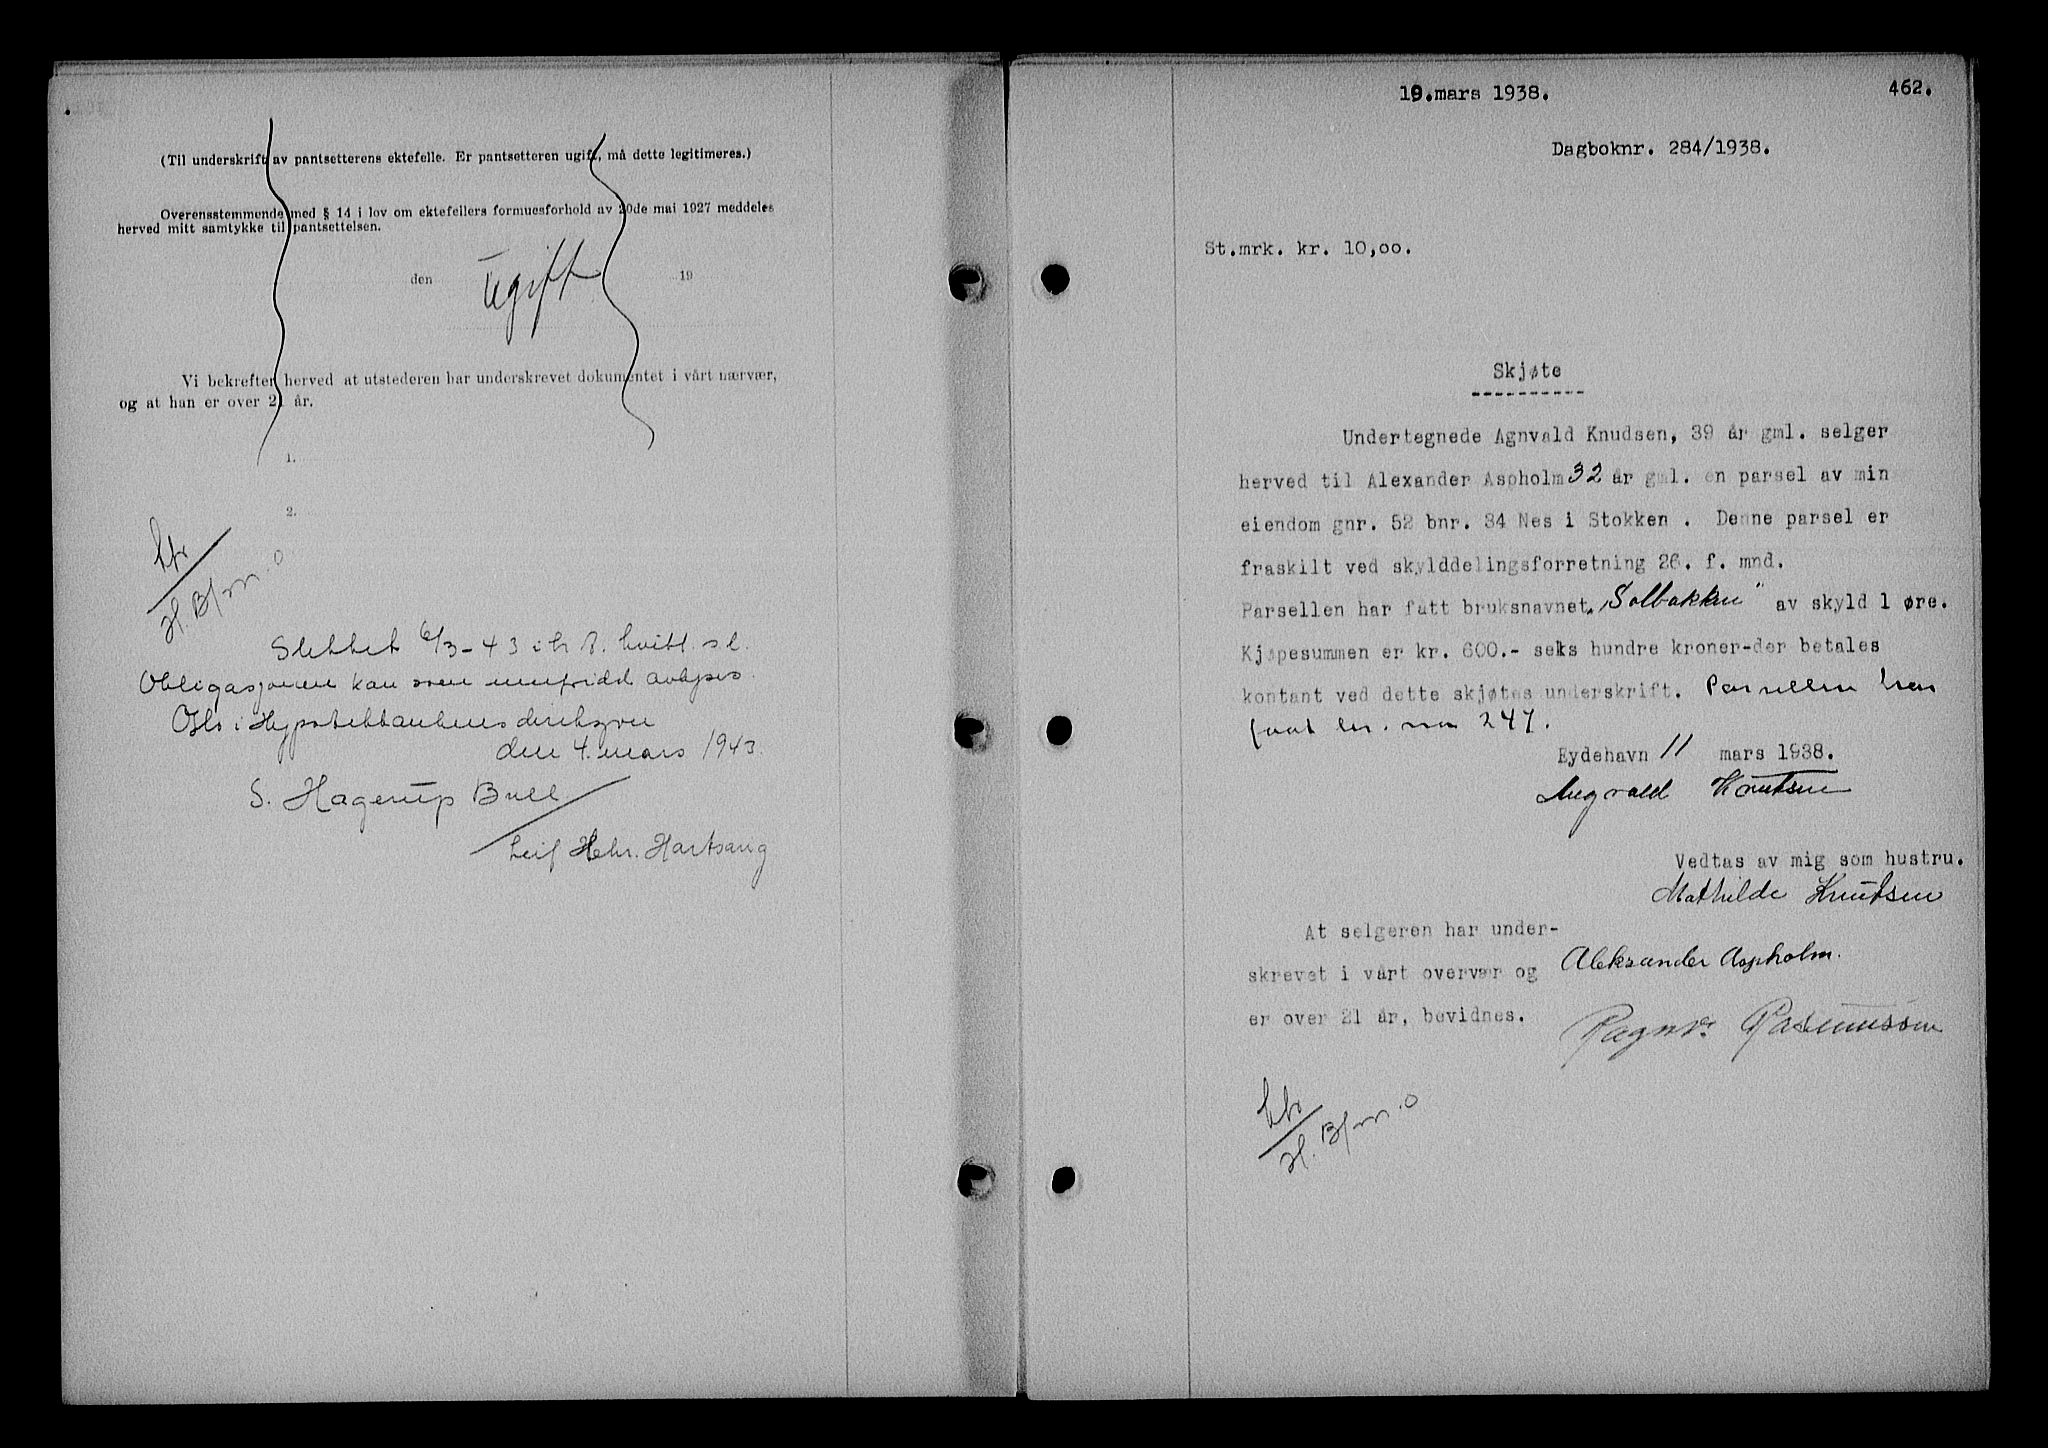 (Til underskrift av pantsetterens ektefelle. Er pantsetteren ugift, må dette legitimeres.)
Overensstemmende med § 14 i lov om ektefellers formuesforhold av 20de mai 1927 meddeles
herved mitt samtykke til pantsettelsen.
den Ugift 19
Vi bekrefter herved at utstederen har underskrevet dokumentet i vårt nærvær,
og at han er over 21 år.
1.
2.
Slettet 6/3-43 i h. t. kvitt. sl.
Obligasjonen kan som innfridd avlyses.
Oslo i Hypotekbankens direksjon
den 4. mars 1943.
S. Hagerup Bull
Leif Hartsang
19.mars 1938.
462.
Dagboknr. 284/1938.
St.mrk. kr. 10,00.
Skjøte
Undertegnede Agnvald Knudsen, 39 år gml. selger
herved til Alexander Aspholm 32 år gml. en parsel av min
eiendom gnr. 52 bnr. 34 Nes i Stokken . Denne parsel er
fraskilt ved skylddelingsforretning 26. f. mnd.
Parsellen har fått bruksnavnet „Solbakken" av skyld 1 øre.
Kjøpesummen er kr. 600.- seks hundre kroner-der betales
kontant ved dette skjøtes underskrift. Parsellen har
faat br. no 247.
Eydehavn 11 mars 1938.
Angvald Knutsen
Vedtas av mig som hustru.
Mathilde Knutsen
At selgeren har under-
skrevet i vårt overvær og
er over 21 år, bevidnes.
Aleksander Aspholm.
Ragnv. Rasmussen